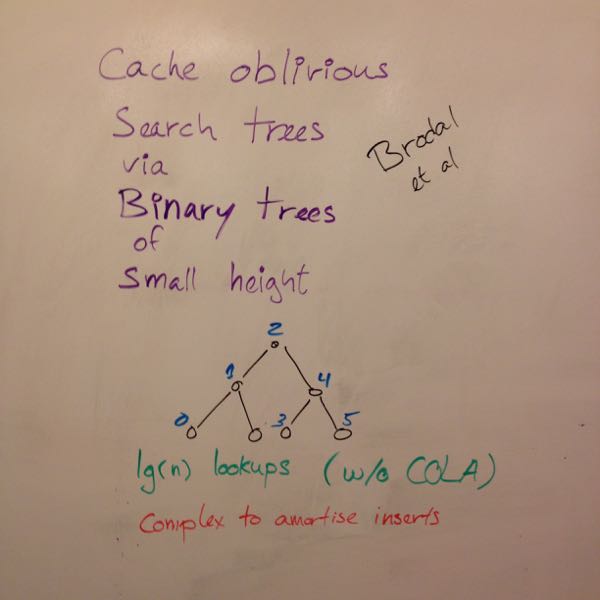 Cache oblivious
Search trees
via
Binary trees
of
small height
Brodal
et al
2
1
4
0
3
5
lg(n) lookups (w/o COLA)
Complex to amortise inserts